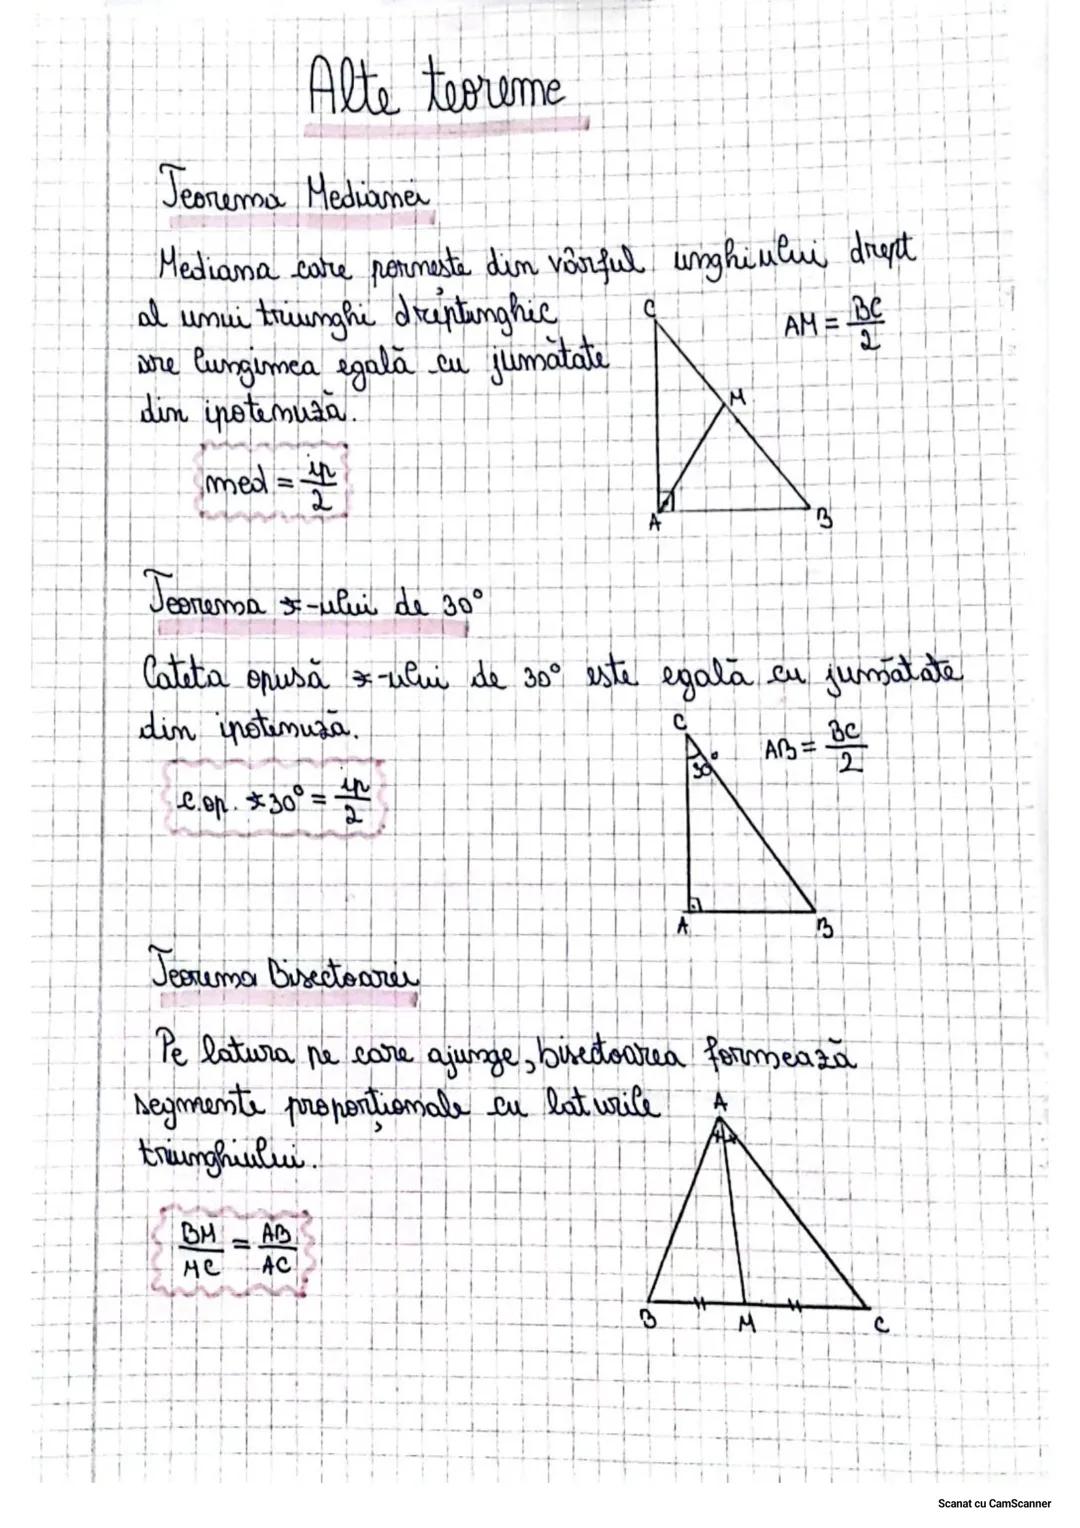 Alte teoreme
Teorema Medianei
Mediana care pornește din vârful unghiului drept
al unui triunghi dreptunghic
are lungimea egală cu jumătate
din ipotenuză.
AM = BC/2
med = ip/2
C
M
A
B
Teorema ∢-ului de 30°
Cateta opusă ∢-ului de 30° este egală cu jumătate
din ipotenuză.
AB = BC/2
c.op. ∢30° = ip/2
C
30°
A
B
Teorema Bisectoarei
Pe latura pe care ajunge, bisectoarea formează
segmente proporționale cu laturile
triunghiului.
BM/MC = AB/AC
A
B
M
C
Scanat cu CamScanner